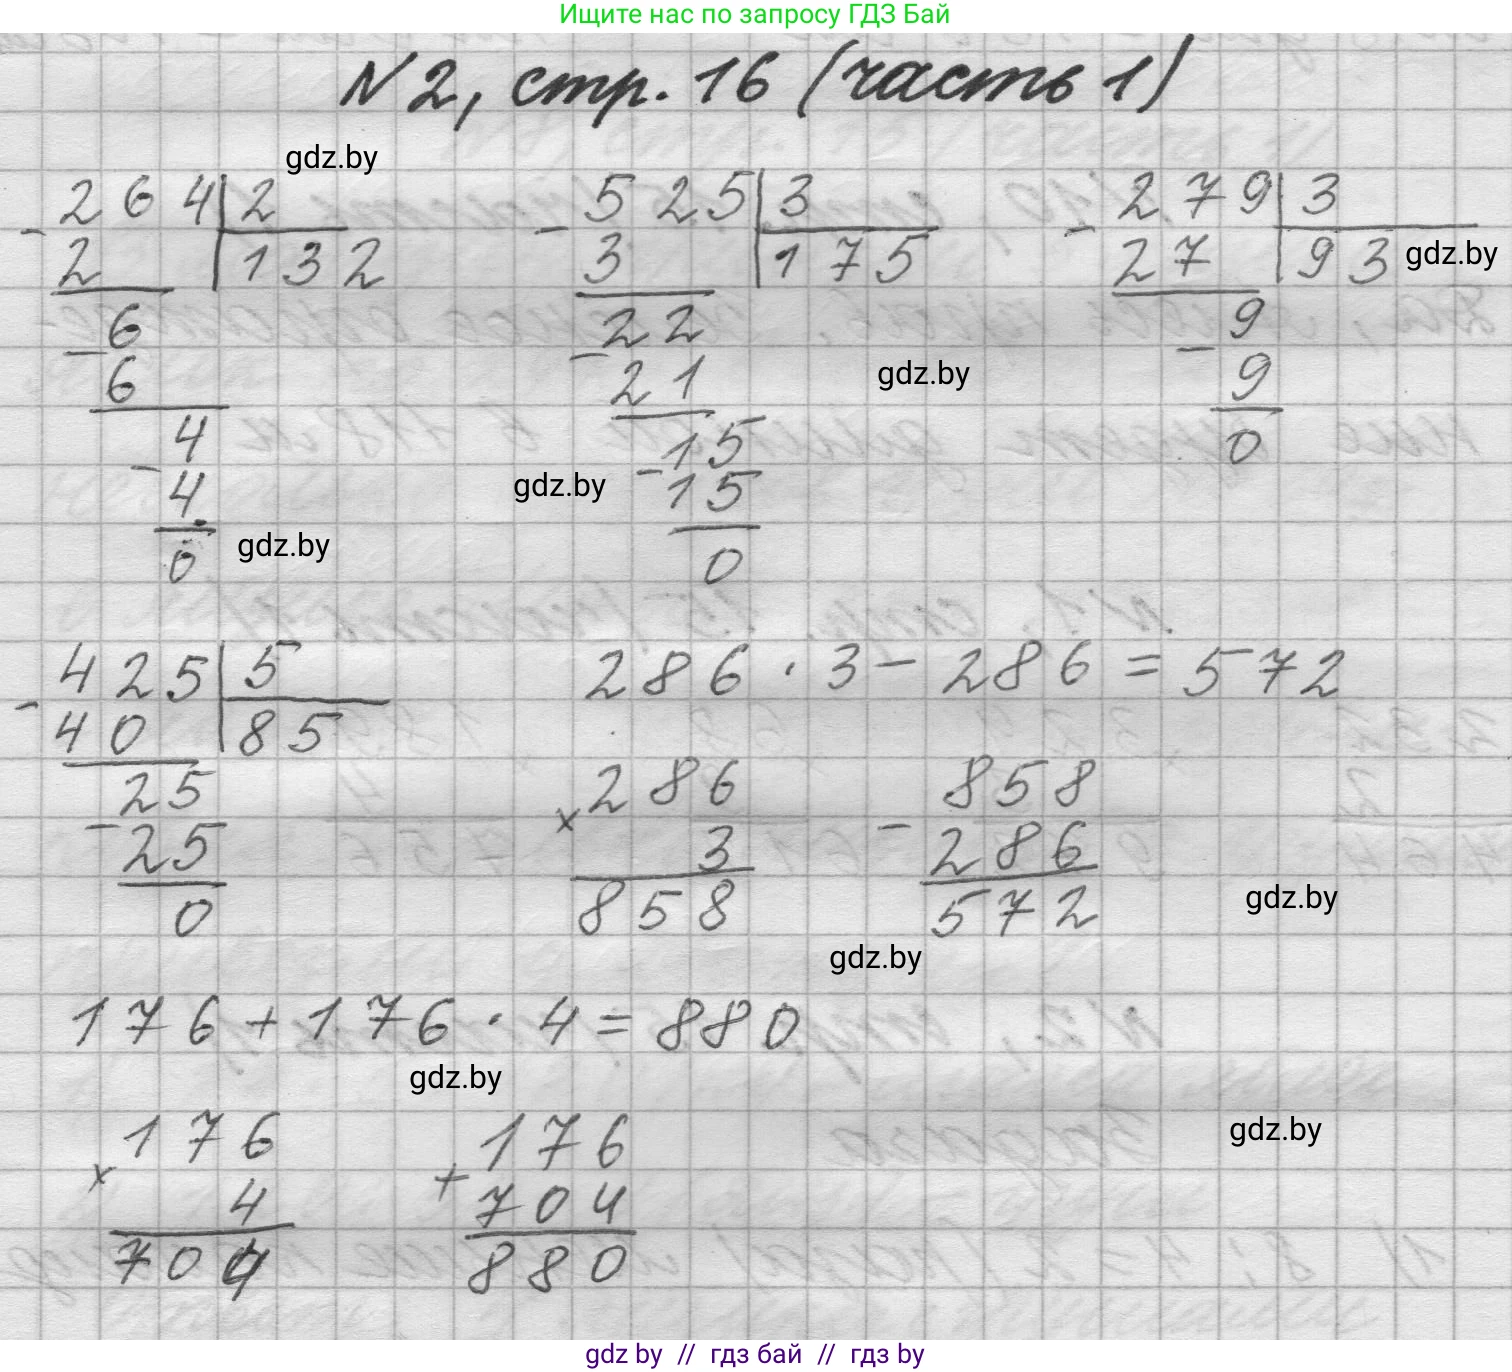 Ищите нас по запросу ГДЗ Бай
№2, стр. 16 (часть 1)
gdz.by
- 264 | 2
2 | 132
- 6
6
- 4
4
0
gdz.by
- 525 | 3
3 | 175
- 22
21
- 15
15
0
gdz.by
gdz.by
- 279 | 3
27 | 93
- 9
9
0
gdz.by
- 425 | 5
40 | 85
- 25
25
0
286 · 3 - 286 = 572
× 286
3
858
- 858
286
572
gdz.by
gdz.by
176 + 176 · 4 = 880
gdz.by
× 176
4
704
+ 176
704
880
gdz.by
gdz by // гдз бай // гдз by